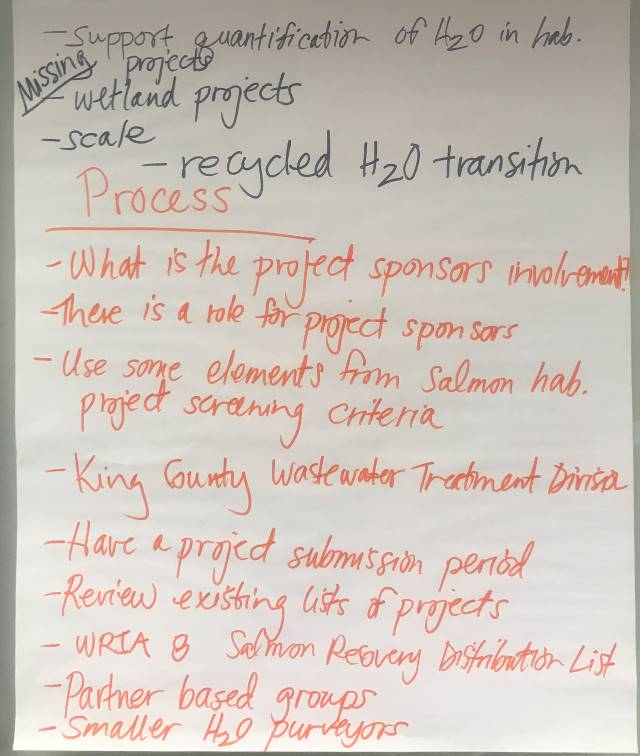 - Support quantification of H2O in hab.
projects
Missing
- wetland projects
- scale
- recycled H2O transition
Process
- What is the project sponsors involvement?
- There is a role for project sponsors
- Use some elements from Salmon hab.
project screening criteria
- King County Wastewater Treatment Division
- Have a project submission period
- Review existing lists of projects
- WRIA 8 Salmon Recovery Distribution List
- Partner based groups
- Smaller H2O purveyors